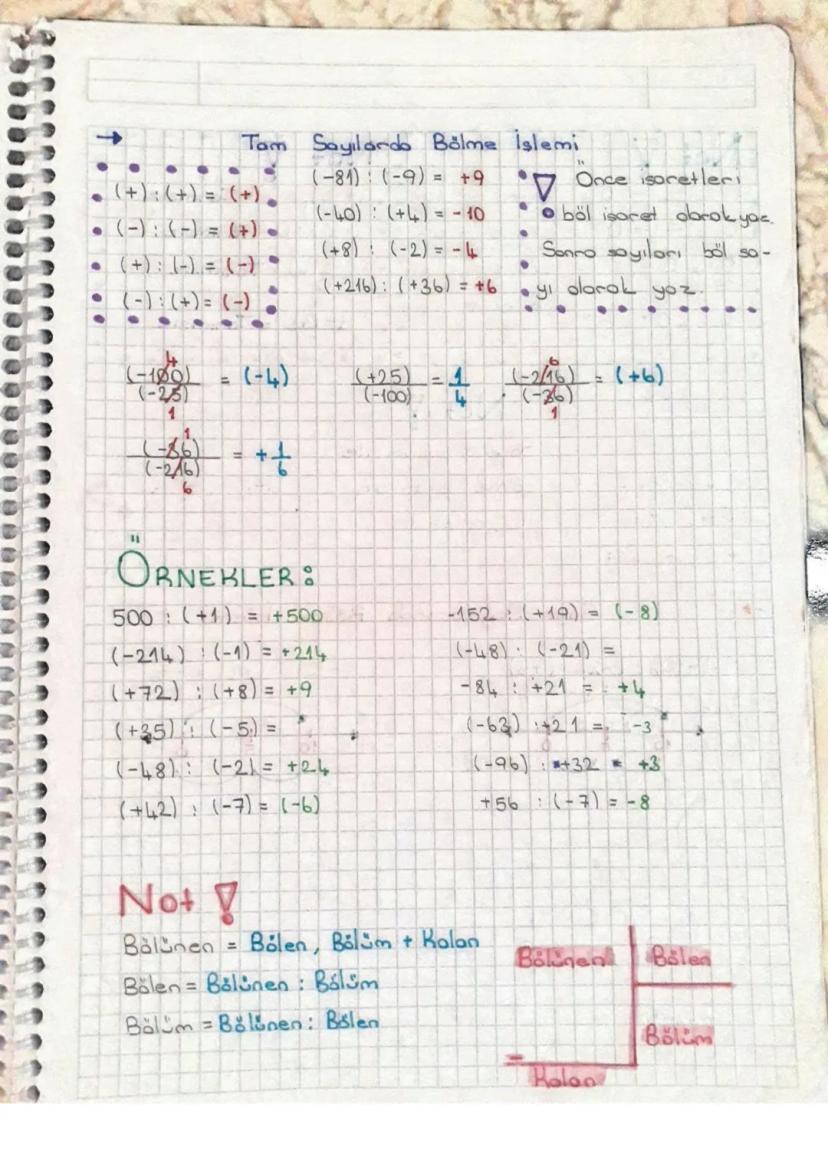 → Tam Sayılarda Bölme İşlemi
(+) : (+) = (+)
(-) : (-) = (+)
(+) : (-) = (-)
(-) : (+) = (-)
(-81) : (-9) = +9
(-40) : (+4) = -10
(+8) : (-2) = -4
(+216) : (+36) = +6
Önce işaretleri
böl işaret olarak yaz.
Sonra sayıları böl sa-
yı olarak yaz.
(-100)/(-25) = (-4)
4
1
(+25)/(-100) = 1/4
(-216)/(-36) = (+6)
6
1
(-36)/(-216) = +1/6
1
6
ÖRNEKLER:
500 : (+1) = +500
(-214) : (-1) = +214
(+72) : (+8) = +9
(+35) : (-5) =
(-48) : (-2) = +24
(+42) : (-7) = (-6)
-152 : (+19) = (-8)
(-48) : (-21) =
-84 : +21 = +4
(-63) : +21 = -3
(-96) : +32 = +3
+56 : (-7) = -8
Not !
Bölünen = Bölen , Bölüm + Kalan
Bölen = Bölünen : Bölüm
Bölüm = Bölünen : Bölen
Bölünen Bölen
Bölüm
Kalan